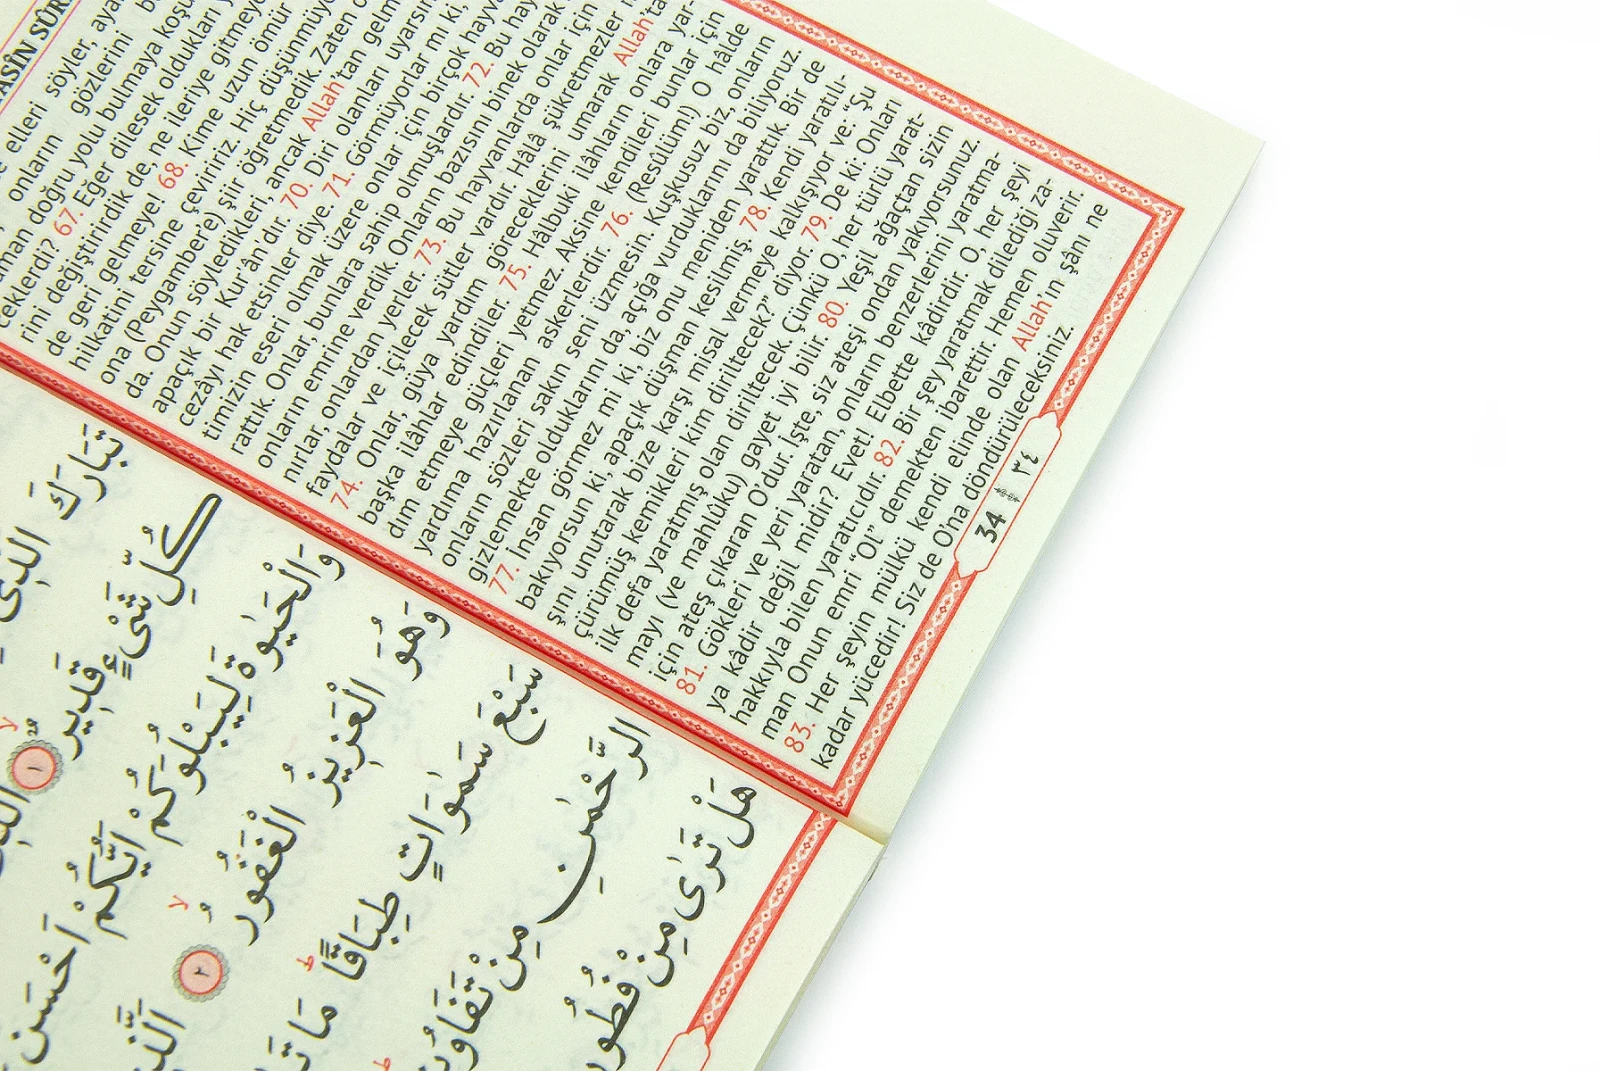 YÂSÎN SÛR
elleri söyler, aya
onların gözlerini
doğru yolu bulmaya koşu
ceklerdi? 67. Eğer dilesek oldukları y
rini değiştirirdik de, ne ileriye gitmeye
de geri gelmeye! 68. Kime uzun ömür
hilkatini tersine çeviririz. Hiç düşünmüyo
ona (Peygambere) şiir öğretmedik. Zaten o
da. Onun söyledikleri, ancak Allah'tan gelm
apaçık bir Kur'ân'dır. 70. Diri olanları uyarsın
cezâyı hak etsinler diye. 71. Görmüyorlar mı ki,
timizin eseri olmak üzere onlar için birçok hayv
rattık. Onlar, bunlara sahip olmuşlardır. 72. Bu hay
onların emrine verdik. Onların bazısını binek olarak
nırlar, onlardan yerler. 73. Bu hayvanlarda onlar için
faydalar ve içilecek sütler vardır. Hâlâ şükretmezler
74. Onlar, güya yardım göreceklerini umarak Allah'ta
başka ilâhlar edindiler. 75. Hâlbuki ilâhların onlara yar-
dım etmeye güçleri yetmez. Aksine kendileri bunlar için
yardıma hazırlanan askerlerdir. 76. (Resûlüm!) O hâlde
onların sözleri sakın seni üzmesin. Kuşkusuz biz, onların
gizlemekte olduklarını da, açığa vurduklarını da biliyoruz.
77. İnsan görmez mi ki, biz onu meniden yarattık. Bir de
bakıyorsun ki, apaçık düşman kesilmiş. 78. Kendi yaratılı-
şını unutarak bize karşı misal vermeye kalkışıyor ve: "Şu
çürümüş kemikleri kim diriltecek?" diyor. 79. De ki: Onları
ilk defa yaratmış olan diriltecek. Çünkü O, her türlü yarat-
mayı (ve mahlûku) gayet iyi bilir. 80. Yeşil ağaçtan sizin
için ateş çıkaran O'dur. İşte, siz ateşi ondan yakıyorsunuz.
81. Gökleri ve yeri yaratan, onların benzerlerini yaratma-
ya kâdir değil midir? Evet! Elbette kâdirdir. O, her şeyi
hakkıyla bilen yaratıcıdır. 82. Bir şey yaratmak dilediği za-
man Onun emri "Ol" demekten ibarettir. Hemen oluverir.
83. Her şeyin mülkü kendi elinde olan Allah'ın şânı ne
kadar yücedir! Siz de O'na döndürüleceksiniz.
34 ٣٤
تَبَارَكَ الَّذ۪ي
كُلِّ شَيْءٍ قَد۪يرٌ ١ الَّذ۪
وَالْحَيٰوةَ لِيَبْلُوَكُمْ اَيُّكُمْ اَحْسَنُ
وَهُوَ الْعَز۪يزُ الْغَفُورُ ٢ الَّذ۪
سَبْعَ سَمٰوَاتٍ طِبَاقًا مَا تَ
الرَّحْمٰنِ مِنْ تَفَاوُتٍ
هَلْ تَرٰى مِنْ فُطُورٍ